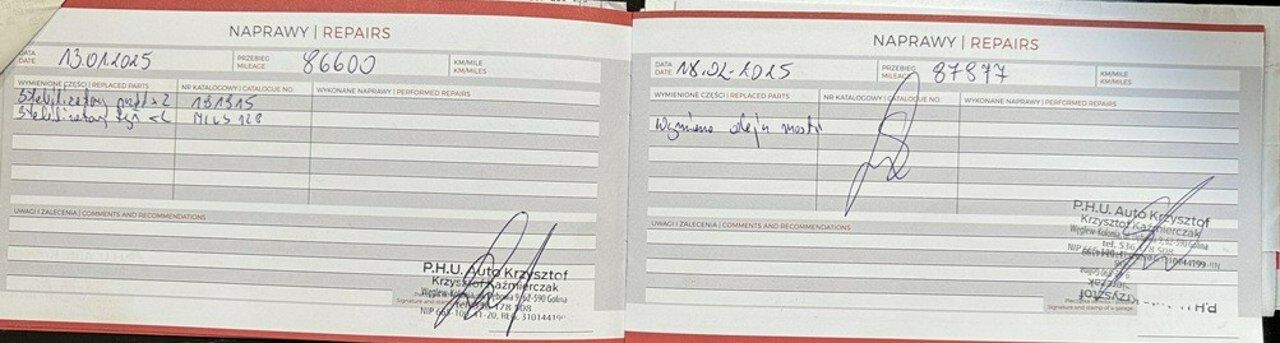 NAPRAWY | REPAIRS
DATA
DATE
13.01.2025
PRZEBIEG
MILEAGE
86600
KM/MILE
KM/MILES
WYMIENIONE CZĘŚCI | REPLACED PARTS
NR KATALOGOWY | CATALOGUE NO.
WYKONANE NAPRAWY | PERFORMED REPAIRS
Stabilizatory przód x2
Stabilizatory tył
UWAGI I ZALECENIA | COMMENTS AND RECOMMENDATIONS
P.H.U. Auto Krzysztof
Krzysztof Kaźmierczak
62-590 Golina
Signature and stamp of a garage
NAPRAWY | REPAIRS
DATA
DATE
18.02-2025
PRZEBIEG
MILEAGE
87877
KM/MILE
KM/MILES
WYMIENIONE CZĘŚCI | REPLACED PARTS
NR KATALOGOWY | CATALOGUE NO.
WYKONANE NAPRAWY | PERFORMED REPAIRS
Wymiana oleju most
UWAGI I ZALECENIA | COMMENTS AND RECOMMENDATIONS
P.H.U. Auto Krzysztof
Krzysztof Kaźmierczak
Węglew-Kolonia 62-590 Golina
Signature and stamp of a garage